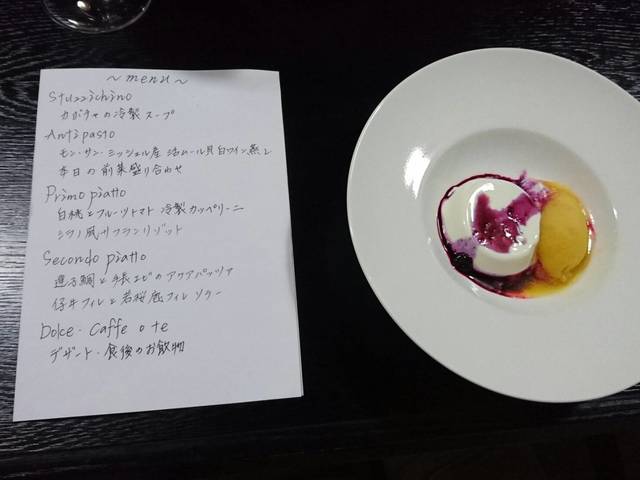 ~ menu ~
Stuzzichino
カボチャの冷製スープ
Antipasto
モン・サン・ミッシェル産 活ムール貝白ワイン蒸し
本日の前菜盛り合わせ
Primo piatto
白桃とフルーツトマト 冷製カッペリーニ
ミラノ風サフランリゾット
Secondo piatto
連子鯛と手長エビのアクアパッツァ
仔牛フィレと若桜鹿フィレ ソテー
Dolce・Caffe o te
デザート・食後のお飲物